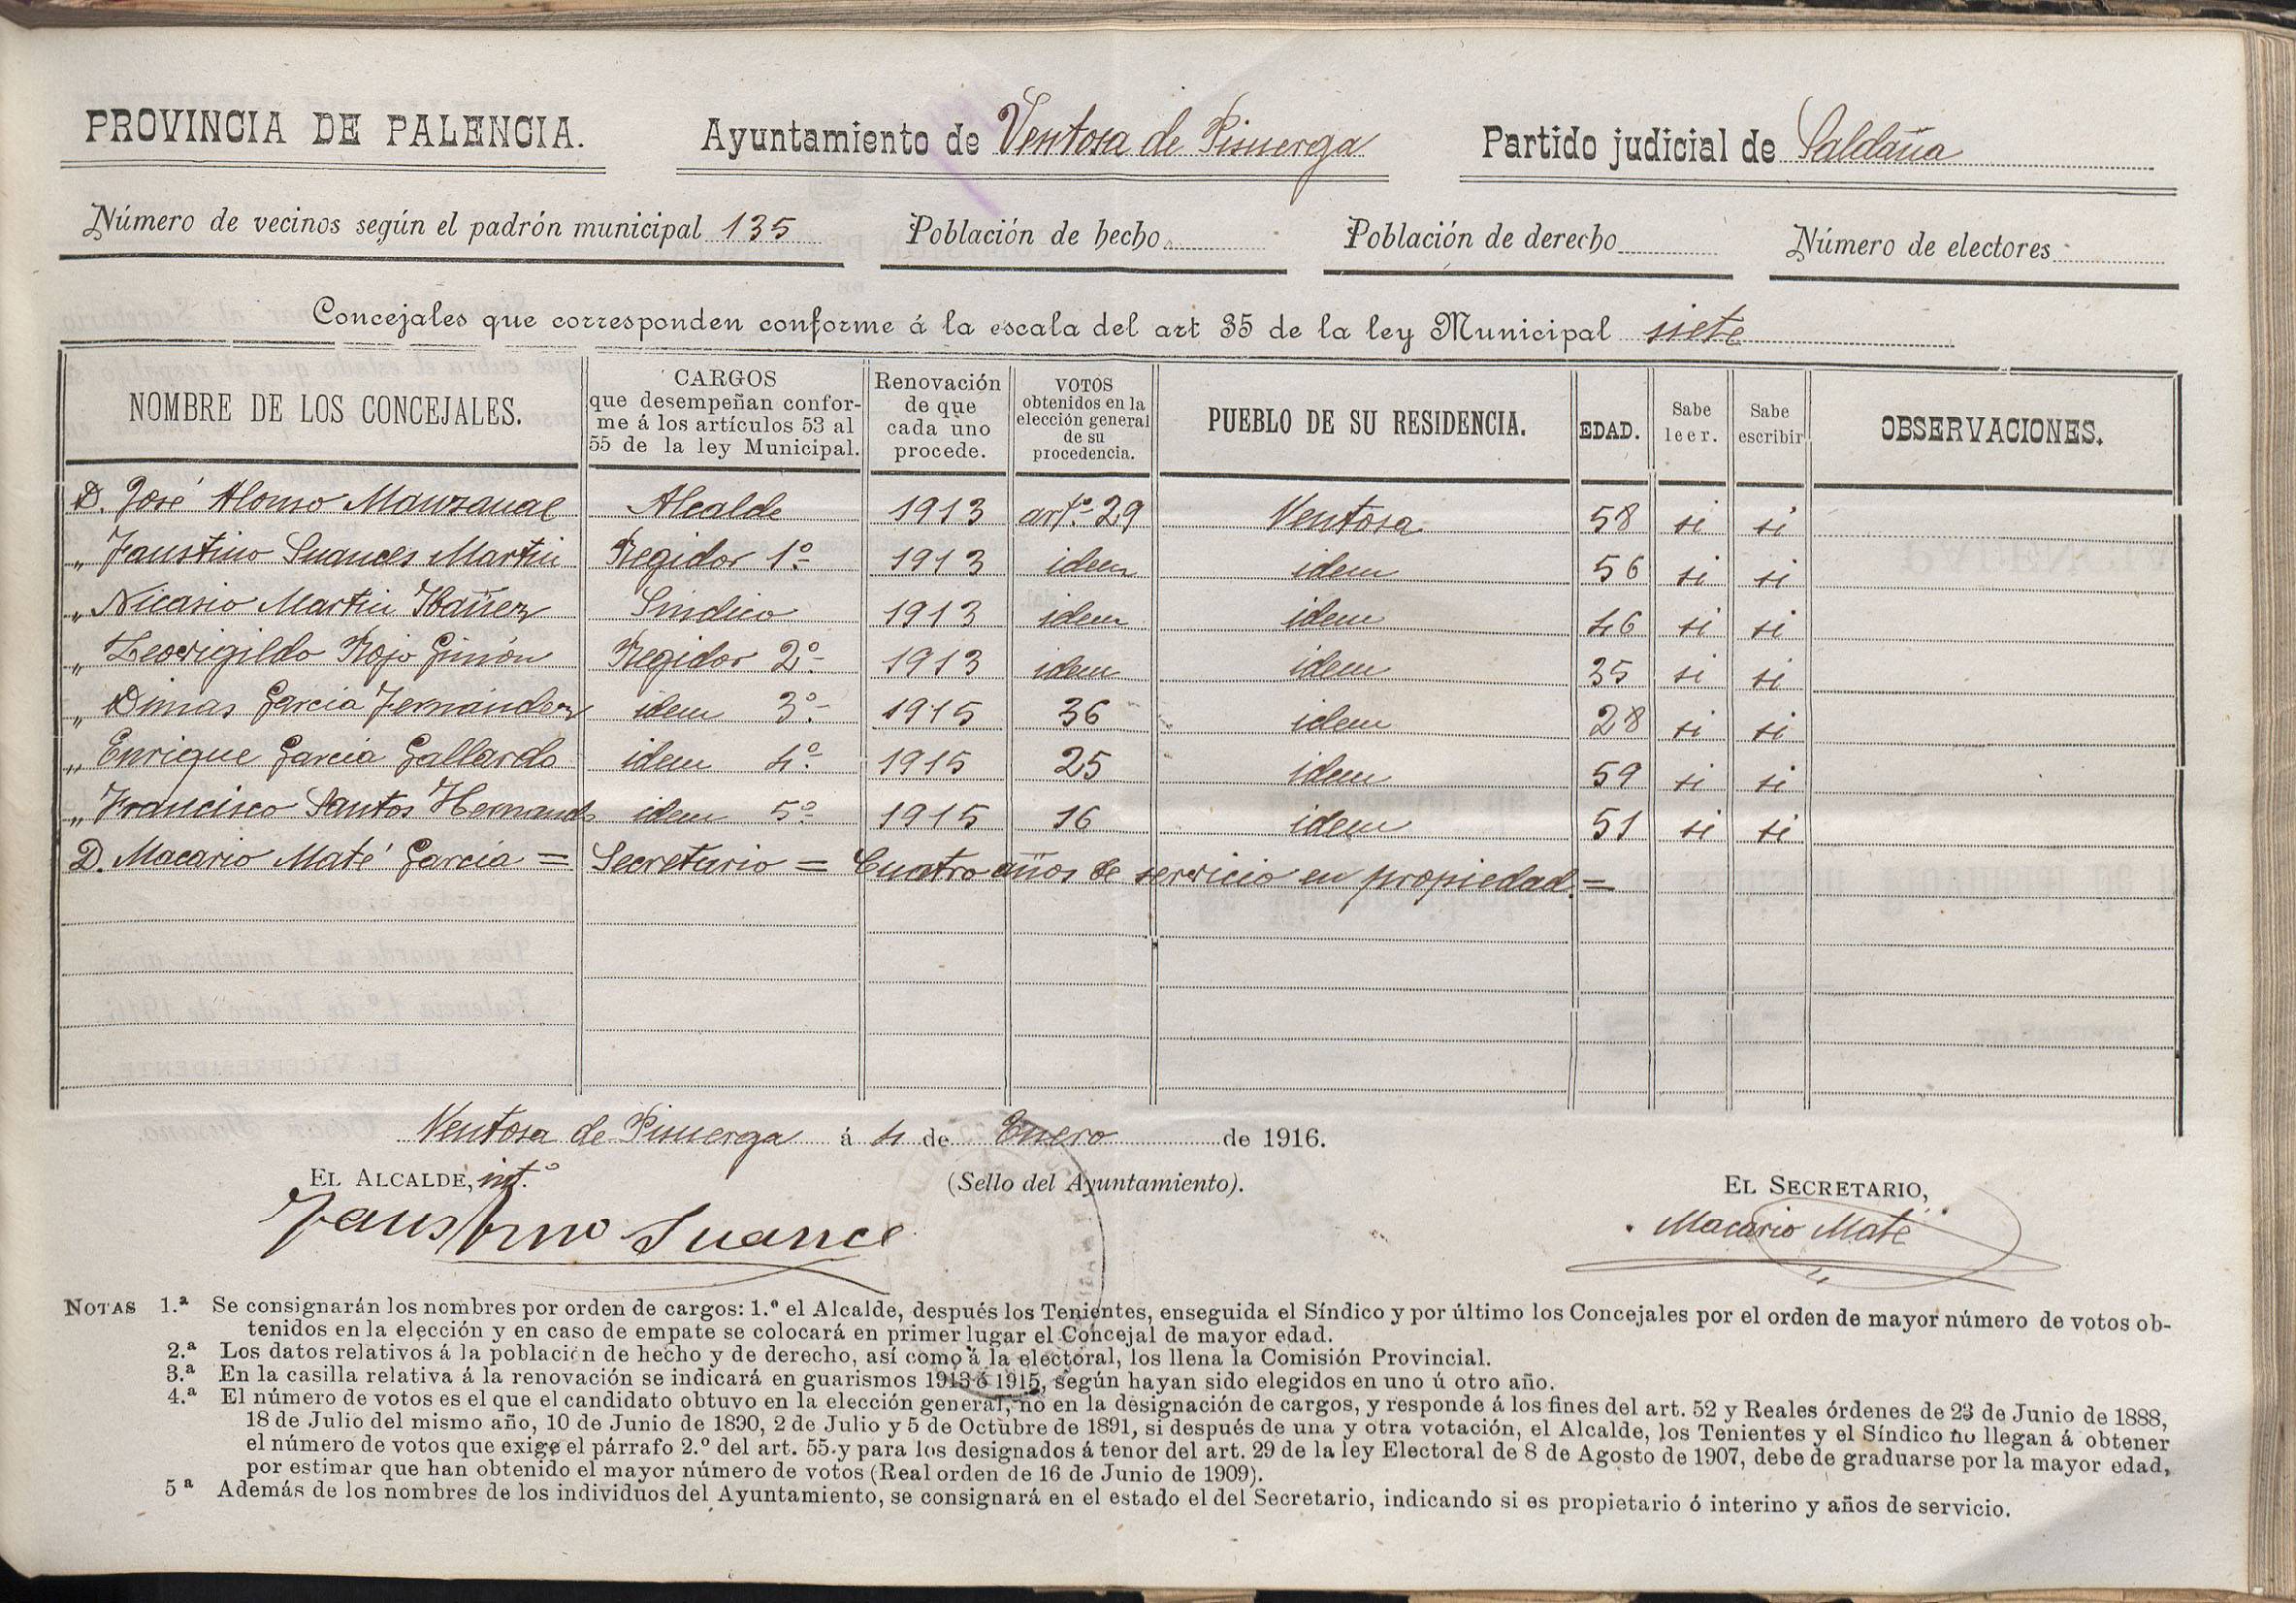 PROVINCIA DE PALENCIA. Ayuntamiento de Ventosa de Pisuerga Partido judicial de Saldaña
Número de vecinos según el padrón municipal 135 Población de hecho Población de derecho Número de electores
Concejales que corresponden conforme á la escala del art 35 de la ley Municipal siete
NOMBRE DE LOS CONCEJALES. CARGOS que desempeñan conforme á los artículos 53 al 55 de la ley Municipal. Renovación de que cada uno procede. VOTOS obtenidos en la elección general de su procedencia. PUEBLO DE SU RESIDENCIA. EDAD. Sabe leer. Sabe escribir OBSERVACIONES.
D. José Alonso Manzanal Alcalde 1913 art.º 29 Ventosa 58 si si
„ Faustino Suances Martin Regidor 1º 1913 idem idem 56 si si
„ Nicasio Martin Ibañez Sindico 1913 idem idem 46 si si
„ Leovigildo Rojo Ginón Regidor 2º 1913 idem idem 35 si si
„ Dimas Garcia Fernández idem 3º 1915 36 idem 28 si si
„ Enrique Garcia Gallardo idem 4º 1915 25 idem 59 si si
„ Francisco Santos Hernand idem 5º 1915 16 idem 51 si si
D. Macario Maté Garcia = Secretario = Cuatro años de servicio en propiedad. =
Ventosa de Pisuerga á 4 de Enero de 1916.
EL ALCALDE, int.º (Sello del Ayuntamiento). EL SECRETARIO,
Faustino Suance Macario Maté
NOTAS 1.ª Se consignarán los nombres por orden de cargos: 1.º el Alcalde, después los Tenientes, enseguida el Síndico y por último los Concejales por el orden de mayor número de votos ob-
tenidos en la elección y en caso de empate se colocará en primer lugar el Concejal de mayor edad.
2.ª Los datos relativos á la población de hecho y de derecho, así como á la electoral, los llena la Comisión Provincial.
3.ª En la casilla relativa á la renovación se indicará en guarismos 1913 ó 1915, según hayan sido elegidos en uno ú otro año.
4.ª El número de votos es el que el candidato obtuvo en la elección general, no en la designación de cargos, y responde á los fines del art. 52 y Reales órdenes de 23 de Junio de 1888,
18 de Julio del mismo año, 10 de Junio de 1890, 2 de Julio y 5 de Octubre de 1891, si después de una y otra votación, el Alcalde, los Tenientes y el Síndico no llegan á obtener
el número de votos que exige el párrafo 2.º del art. 55 y para los designados á tenor del art. 29 de la ley Electoral de 8 de Agosto de 1907, debe de graduarse por la mayor edad,
por estimar que han obtenido el mayor número de votos (Real orden de 16 de Junio de 1909).
5ª Además de los nombres de los individuos del Ayuntamiento, se consignará en el estado el del Secretario, indicando si es propietario ó interino y años de servicio.